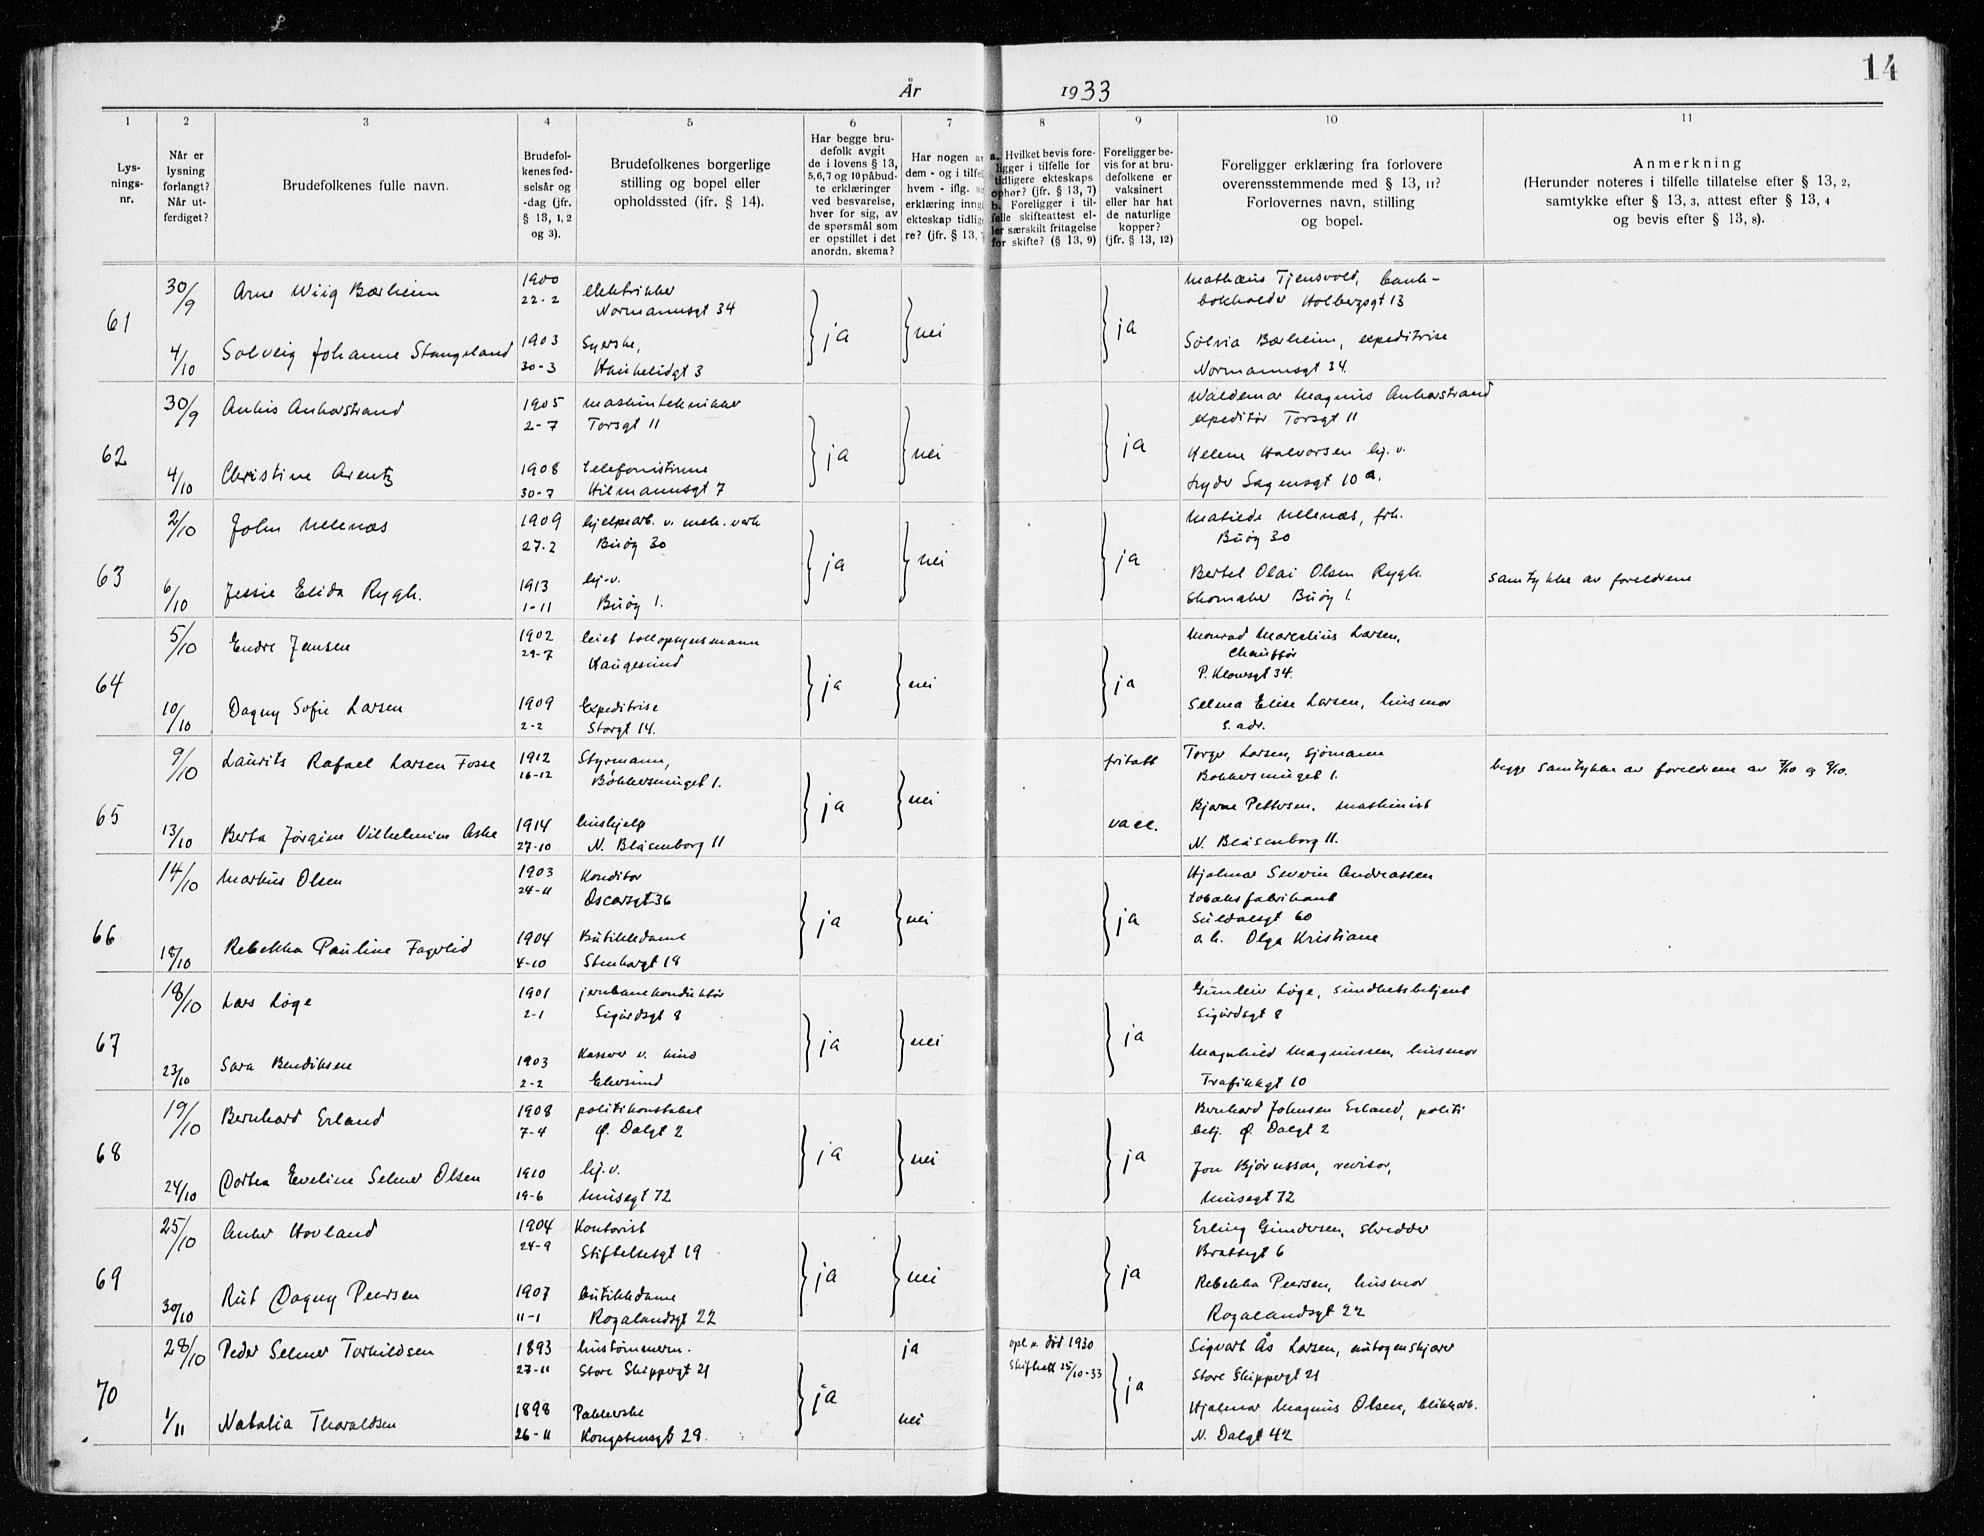 14
År 1933
1 2 3 4 5 6 7 8 9 10 11
Lys-
nings-
nr.
Når er
lysning
forlangt?
Når ut-
ferdiget?
Brudefolkenes fulle navn.
Brudefol-
kenes fød-
selsår og
-dag (jfr.
§ 13, 1, 2
og 3).
Brudefolkenes borgerlige
stilling og bopel eller
opholdssted (jfr. § 14).
Har begge bru-
defolk avgit
de i lovens § 13,
5, 6, 7 og 10 påbud-
te erklæringer
ved besvarelse,
hver for sig, av
de spørsmål som
er opstillet i det
anordn. skema?
Har nogen av
dem - og i tilfe
hvem - iflg. s
erklæring inng
ekteskap tidlig
re? (jfr. § 13,
a. Hvilket bevis fore-
ligger i tilfelle for
tidligere ekteskaps
ophør? (jfr. § 13, 7)
b. Foreligger i til-
felle skifteattest el-
ler særskilt fritagelse
for skifte? (§ 13, 9)
Foreligger be-
vis for at bru-
defolkene er
vaksinert
eller har hat
de naturlige
kopper?
(jfr. § 13, 12)
Foreligger erklæring fra forlovere
overensstemmende med § 13, 11?
Forlovernes navn, stilling
og bopel.
Anmerkning
(Herunder noteres i tilfelle tillatelse efter § 13, 2,
samtykke efter § 13, 3, attest efter § 13, 4
og bevis efter § 13, 8).
61
30/9 Arne Wiig Bærheim 1900 elektriker
22-2 Normannsgt 34
4/10 Solveig Johanne Stangeland 1903 Syerske,
30-3 Haukelidgt 3
ja nei ja
Mathæus Tjensvold, bank-
bokholder Holbergsgt 13
Solvia Bærheim, expeditrise
Normannsgt 34.
62
30/9 Ankis Ankerstrand 1905 maskintekniker
2-7 Torsgt 11
4/10 Christine Arentz 1908 telefonistinne
30-7 Hilmannsgt 7
ja nei ja
Waldemar Magnus Ankerstrand
expeditør Torsgt 11
Helene Halvorsen hj. v.
Lyder Sagensgt 10 a.
63
2/10 John Melenæs 1909 hjelpearb. v. mek. verk
27-2 Buøy 30
6/10 Jessie Elida Rygh. 1913 hj.v.
1-11 Buøy 1.
ja nei ja
Matilde Melenæs, frk.
Buøy 30
Bertel Olai Olsen Rygh.
Skomaker Buøy 1.
samtykke av foreldrene
64
5/10 Endre Jensen 1902 leiet tollopsynsmann
29-7 Haugesund
10/10 Dagny Sofie Larsen 1909 Expeditrise
2-2 Storgt 14.
ja nei ja
Monrad Marcelius Larsen,
Chauffør
P. Klowsgt 34.
Selma Elise Larsen, husmor
s. adr.
65
9/10 Laurits Rafael Larsen Fosse 1912 Styrmann,
16-12 Bøkkersmuget 1.
13/10 Berta Jørgine Vilhelmine Aske 1914 hushjelp
27-10 N. Blåsenborg 11
ja nei
fritatt
vacc.
Torger Larsen, Sjømann
Bøkkersmuget 1.
Bjarne Pettersen, maskinist
N. Blåsenborg 11.
begge samtykke av foreldrene av 7/10 og 9/10.
66
14/10 Markus Olsen 1903 Konditor
24-11 Oscarsgt 36
18/10 Rebekka Pauline Fagerlid 1904 Butikkdame
4-10 Stenhargt 18
ja nei ja
Hjalmar Severin Andreassen
tobaksfabrikant
Suldalsgt 60
o.h. Olga Kristiane
67
18/10 Lars Løge 1901 jernbanekonduktør
2-1 Sigurdsgt 8
23/10 Sara Bendiksen 1903 Kasserer v. kino
2-2 Ekersund
ja nei ja
Gunleiv Løge, sundhetsbetjent
Sigurdsgt 8
Magnhild Magnussen, husmor
Trafikkgt 10
68
19/10 Bernhard Erland 1908 politikonstabel
7-4 Ø. Dalgt 2
24/10 Dortea Eveline Selmer Olsen 1910 hj.v.
19-6 Musegt 72
ja nei ja
Bernhard Johnsen Erland, politi
betj. Ø Dalgt 2
Jon Bjørnsson, revisor,
Musegt 72
69
25/10 Anker Hovland 1904 Kontorist
24-9 Stiftelsesgt 19
30/10 Rut Dagny Peersen 1907 butikkdame
11-1 Rogalandsgt 22
ja nei ja
Erling Gundersen, skredder
Brattegt 6
Rebekka Peersen, husmor
Rogalandsgt 22
70
28/10 Peder Selmer Torkildsen 1893 hustømmerm.
27-11 Store Skippergt 21
1/11 Natalia Tharaldsen 1898 Pakkerske
26-11 Kongstensgt 29.
ja
ja
nei
opl. v. død 1930
Skifteatt 25/10-33
ja
Sigvart Ås Larsen, autogenskjærer
Store Skippergt 21
Hjalmar Magnus Olsen, blikkarb.
N. Dalgt 42